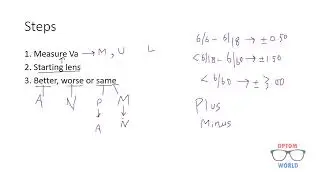 Steps
1. Measure Va → M, U L
2. Starting lens
3. Better, worse or same
A N P M
A N
6/6 - 6/18 → ± 0.50
< 6/18 - 6/60 → ± 1.50
< 6/60 → ± 3.00
Plus
Minus
OPTOM
WORLD